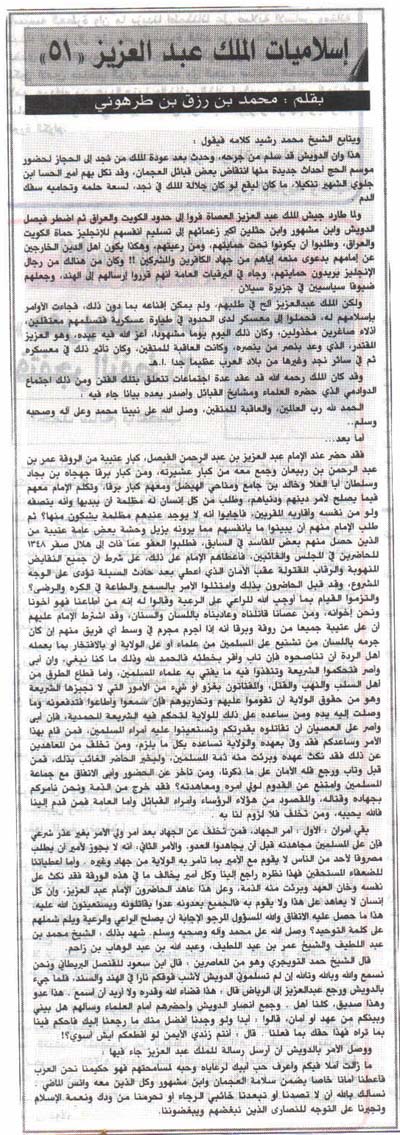 إسلاميات الملك عبد العزيز «٥١»
بقلم : محمد بن رزق بن طرهوني
ويتابع الشيخ محمد رشيد كلامه فيقول :
هذا وان الدويش قد سلم من جرحه، وحدث بعد عودة الملك من نجد إلى الحجاز لحضور
موسم الحج أحداث جديدة منها انتقاض بعض قبائل العجمان، وقد نكل بهم أمير الحسا ابن
جلوي الشهير تنكيلا، ما كان ليقع لو كان جلالة الملك في نجد، لسعة حلمه وتحاميه سفك
الدم
ولما طارد جيش الملك عبد العزيز العصاة فروا إلى حدود الكويت والعراق ثم اضطر فيصل
الدويش وابن مشهور وابن حثلين أكبر زعمائهم إلى تسليم أنفسهم للإنجليز حماة الكويت
والعراق، وطلبوا أن يكونوا تحت حمايتهم، ومن رعيتهم، وهكذا يكون أهل الدين الخارجين
عن إمامهم بدعوى منعه إياهم من جهاد الكافرين والمشركين !! وكان من هنالك من رجال
الإنجليز يريدون حمايتهم، وجاء في البرقيات العامة انهم قرروا إرسالهم إلى الهند، وجعلهم
ضيوفا سياسيين في جزيرة سيلان
ولكن الملك عبدالعزيز ألح في طلبهم، ولم يمكن إقناعه بما دون ذلك، فجاءت الأوامر
بإسلامهم له، فحملوا إلى معسكر لدى الحدود في طيارة عسكرية فتسلمهم معتقلين،
أذلاء صاغرين مخذولين، وكان ذلك اليوم يوما مشهودا، أعز الله فيه عبده، وهو العزيز
المقتدر، الذي وعد بنصر من ينصره، وكانت العاقبة للمتقين، وكان تأثير ذلك في معسكره
ثم في سائر نجد وغيرها من بلاد العرب عظيما جدا .ا.هـ
وقد كان الملك رحمه الله قد عقد عدة اجتماعات تتعلق بتلك الفتن ومن ذلك اجتماع
الدوادمي الذي حضره العلماء ومشايخ القبائل وأصدر بعده بيانا جاء فيه :
الحمد لله رب العالمين، والعاقبة للمتقين، وصل الله على نبينا محمد وعلى آله وصحبه
وسلم..
أما بعد...
فقد حضر عند الإمام عبد العزيز بن عبد الرحمن الفيصل، كبار عتيبة من الروقة عمر بن
عبد الرحمن بن ربيعان وجمع معه من كبار عشيرته، ومن كبار برقا جهجاه بن بجاد
وسلطان أبا العلا وخالد بن جامع ومناحي الهيضل ومعهم كبار برقا، وتكلم الإمام معهم
فيما يصلح لأمر دينهم ودنياهم، وطلب من كل إنسان له مظلمة أن يبديها وأنه ينصفه
ولو من نفسه وأقاربه القربيين، فأجابوا أنه لا يوجد عندهم مظلمة يشكون منها؟ ثم
طلب الإمام منهم أن يبينوا ما بأنفسهم مما يرونه يزيل وحشة بعض عامة عتيبة من
الذين حصل منهم بعض المفاسد في السابق، فطلبوا العفو عما فات إلى هلال صفر ١٣٤٨
للحاضرين في المجلس والغائبين، فأعطاهم الإمام على ذلك، على شرط أن جميع النقايض
المنهوبة والرقاب المقتولة عقب الأمان الذي أعطي بعد حادث السبلة تؤدى على الوجه
المشروع، وقد قبل الحاضرون بذلك وامتثلوا الأمر بالسمع والطاعة في الكره والرضى؟
والتزموا القيام بما أوجب الله للراعي على الرعية وقالوا له إنه من أطاعنا فهو أخونا
ونحن إخوانه، ومن عصانا قاتلناه وعاديناه باللسان والسنان، وقد اشترط الإمام عليهم
أن على عتيبة جميعا من روقة وبرقا أنه إذا أجرم مجرم في وسط أي فريق منهم إن كان
جرمه باللسان من تشنيع على المسلمين من علماء أو على الولاية أو بالافتخار بما يعمله
أهل الردة أن تناصحوه فإن تاب وأقر بخطئه فالحمد لله وذلك ما كنا نبغي، وإن أبى
وأصر فتحكموا الشريعة وتنفذوا فيه ما يفتي به علماء المسلمين، وأما قطاع الطرق من
أهل السلب والنهب والقتل، والمفتاتون بغزو أو شيء من الأمور التي لا تجيزها الشريعة
وهو من حقوق الولاية أن تقوموا عليهم وتحاربوهم، فإن سمعوا وأطاعوا فتدفعونه وما
وصلت إليه يده ومن ساعده على ذلك للولاية لتحكم فيه الشريعة المحمدية، فإن أبى
وأصر على العصيان أن تقاتلوه بقدرتكم وتستعينوا عليه أمراء المسلمين، فمن قام بهذا
الأمر وساعدكم فقد وفى بعهده والولاية تساعده بكل ما يلزم، ومن تخلف من المعاهدين
عن ذلك فقد نكث عهده وبرئت منه ذمة المسلمين، وليخبر الحاضر الغائب بذلك، فمن
قبل وتاب ورجع فله الأمان على ما ذكرنا، ومن تأخر عن الحضور وأبى الاتفاق مع جماعة
المسلمين وامتنع عن القدوم لولي أمره ومعاهدته؟ فقد خرج من الذمة ونحن نأمركم
بجهاده وقتاله، والمقصود من هؤلاء الرؤساء وأمراء القبائل وأما العامة فمن قدم إلينا
فالله يحييه، ومن تخلف فلا لزوم لنا به .
بقي أمران : الأول : أمر الجهاد، فمن تخلف عن الجهاد بعد أمر ولي الأمر بغير عذر شرعي
فإن على المسلمين مجاهدته قبل أن يجاهدوا العدو. والأمر الثاني، أنه لا يجوز لأمير أن يطلب
مصروفا لأحد من الناس لا يقوم مع الأمير بما تأمر به الولاية من جهاد وغيره . وأما اعطياتنا
للضعفاء المستحقين فهذا نظره راجع إلينا وكل أمير يخالف ما في هذه الورقة فقد نكث على
نفسه وخان العهد وبرئت منه الذمة، وعلى هذا عاهد الحاضرون الإمام عبد العزيز، وإن كل
إنسان لا يعاهد على هذا ولا يقوم به فالجميع يعدونه عدوا يقاتلونه ويستعينون الله عليه،
هذا ما حصل عليه الاتفاق والله المسؤول المرجو الإجابة أن يصلح الراعي والرعية ويلم شملهم
على كلمة التوحيد؟ وصل الله على محمد وآله وصحبه وسلم. شهد بذلك : الشيخ محمد بن
عبد اللطيف والشيخ عمر بن عبد اللطيف، وعبد الله بن عبد الوهاب بن زاحم.
قال الشيخ حمد التويجري وهو من المعاصرين : قال ابن سعود للقنصل البريطاني ونحن
نسمع والله وبالله وتالله إن لم تسلموني الدويش لأشب فوقكم نارا في الهند والسند، فلما جيء
بالدويش ورجع عبدالعزيز إلى الرياض قال : هذا قضاء الله وقدره ولا أريد أن أسمع : هذا عدو
وهذا صديق، كلنا أهل . وجمع أنصار الدويش وأحضرهم أمام العلماء وسألهم هل بيني
وبينكم من عهد أو أمان، قالوا : أبدا ولو وجدنا أفضل منك ما رجعنا إليك فاحكم فينا
بما تراه فهذا حقك بما فعلنا . قال : أنتم زندي الأيمن لو أقطعكم أيش أسوي؟!
ووصل الأمر بالدويش أن أرسل رسالة للملك عبد العزيز جاء فيها :
ما زالت آملا فيكم وأعرف حب أبيك لرعاياه وحبه لسامحتهم فهو حكيمنا نحن العرب
فأعطنا أمانا خاصا يضمن سلامة العجمان وابن مشهور وكل الذين معه وانس الماضي .
نسالك بالله أن لا تصدنا أو تبعدنا خائبي الرجاء أو تحرمنا من ودك ونعمة الإسلام
وتجبرنا على التوجه للنصارى الذين نبغضهم ويبغضوننا.